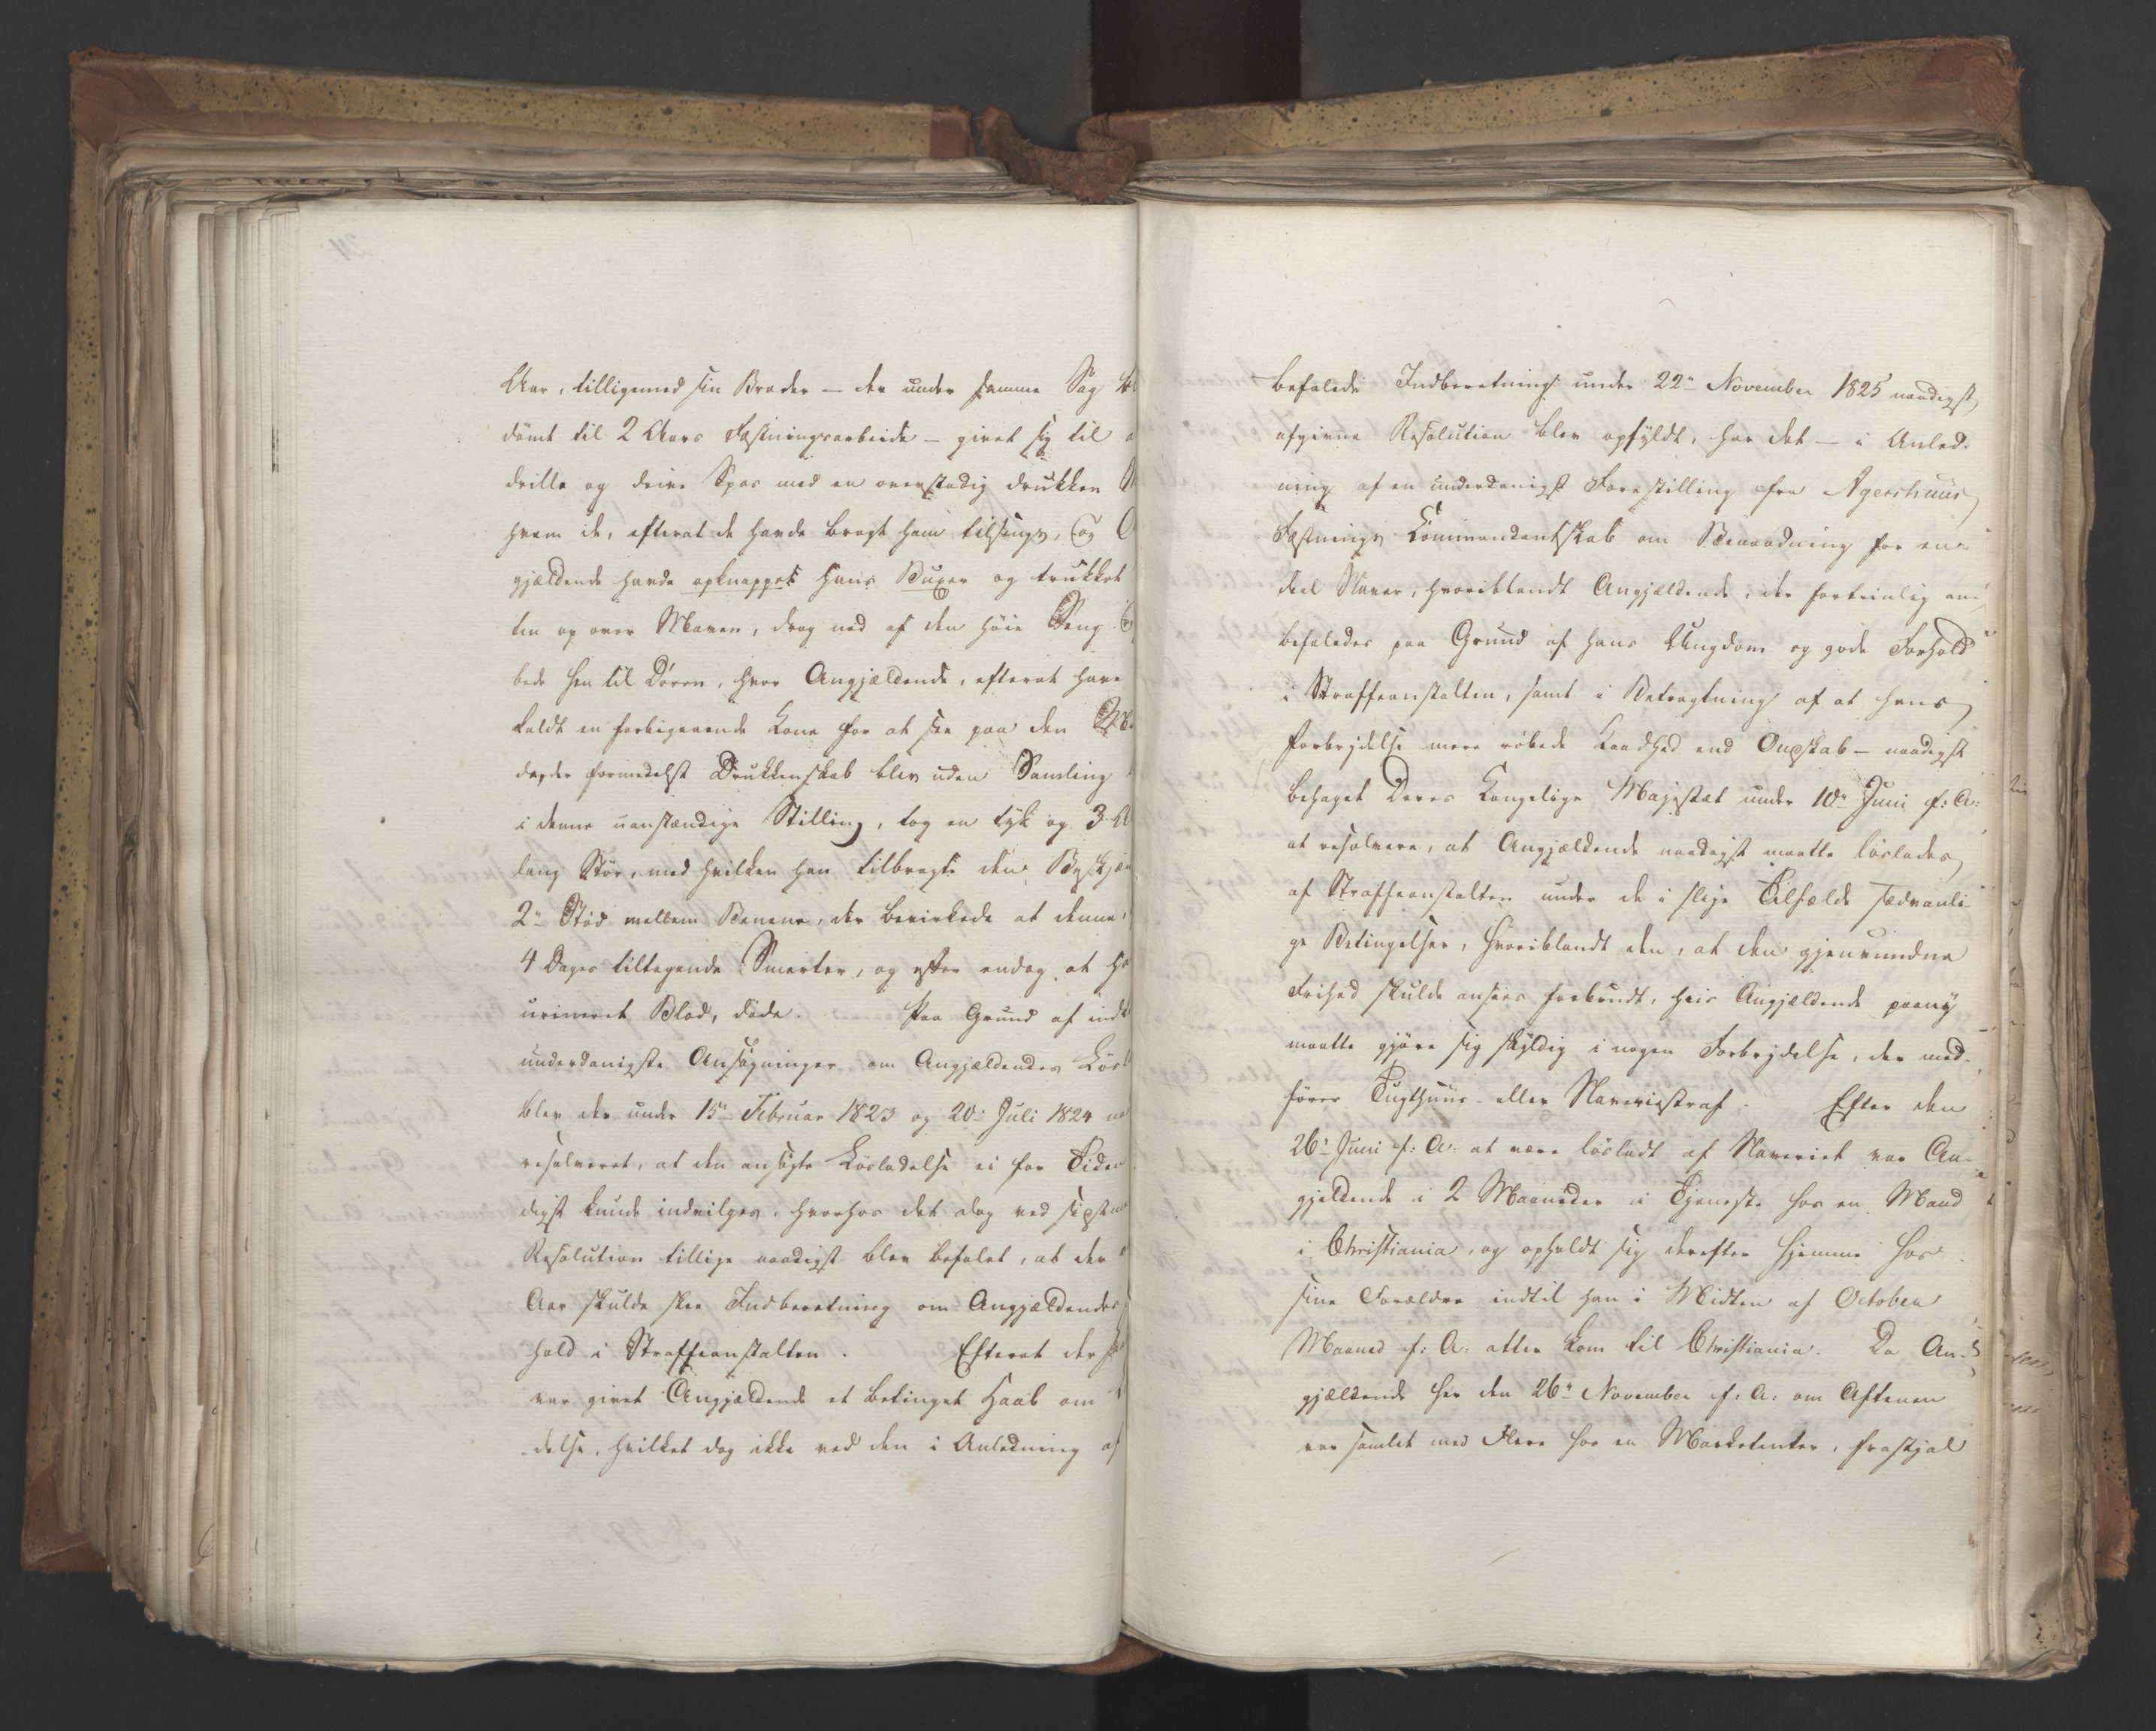 Aar, tilligemed sin Broder – der under samme Sag
dömt til 2 Aars Fæstningsarbeide – givet sig til
drille og drive Spas med en overstadig drukken
hvem de, efterat de havde bragt ham tilsengs, og
gjældende havde opknappet hans Buxer og trukket
ten op over Maven, drog ned af den höie Seng
bede hen til Dören, hvor Angjældende, efterat have
kaldt en forbigaaende Kone for at see paa den
de, der formedelst Drukkenskab blev uden Samling
i denne uanstændige Stilling, tog en tyk og 3
lang Stör, med hvilken han tilbragte den
2de Stöd mellem Benene, der bevirkede at denne,
4 Dages tiltagende Smerter, og efter endog at
urineret Blod, döde. Paa Grund af
underdanigste Ansögninger om Angjældendes
blev der under 15de Februar 1823 og 20de Juli 1824
resolveret, at den ansögte Lösladelse ei for Tiden
digst kunde indvilges, hvorhos det dog ved sidstnæ
Resolution tillige naadigst blev befalet, at der
Aar skulde skee Indberetning om Angjældendes
hold i Straffeanstalten. Efterat der
var givet Angjældende et betinget Haab om
delse, hvilket dog ikke ved den i Anledning af
befalede Indberetning under 22de November 1825 naadigst
afgivne Resolution blev opfyldt, har det – i Anled-
ning af en underdanigst Forestilling fra Agershuus
Fæstnings Commandantskab om Benaadning for en
deel Slaver, hvoriblandt Angjældende, der fortrinlig an-
befaledes paa Grund af hans Ungdom og gode Forhold
i Straffeanstalten, samt i Betragtning af at hans
Forbrydelse mere röbede Kaadhed end Ondskab – naadigst
behaget Deres Kongelige Majestæt under 10de Juni f: A:
at resolvere, at Angjældende naadigst maatte löslades
af Straffeanstalten under de i slige Tilfælde sædvanli
ge Betingelser, hvoriblandt den, at den gjenvundne
Frihed skulde ansees forbrudt, hvis Angjældende paany
maatte gjöre sig skyldig i nogen Forbrydelse, der med-
förer Tugthuus- eller Slaveriestraf. Efter den
26de Juni f: A: at være lösladt af Slaveriet var An-
gjeldende i 2 Maaneder i Tjeneste hos en Mand
i Christiania, og opholdt sig derefter hjemme hos
sine Forældre indtil han i Midten af October
Maaned f: A: atter kom til Christiania. Da An-
gjældende her den 26de November f: A: om Aftenen
var samlet med Flere hos en Marketenter, frastjal